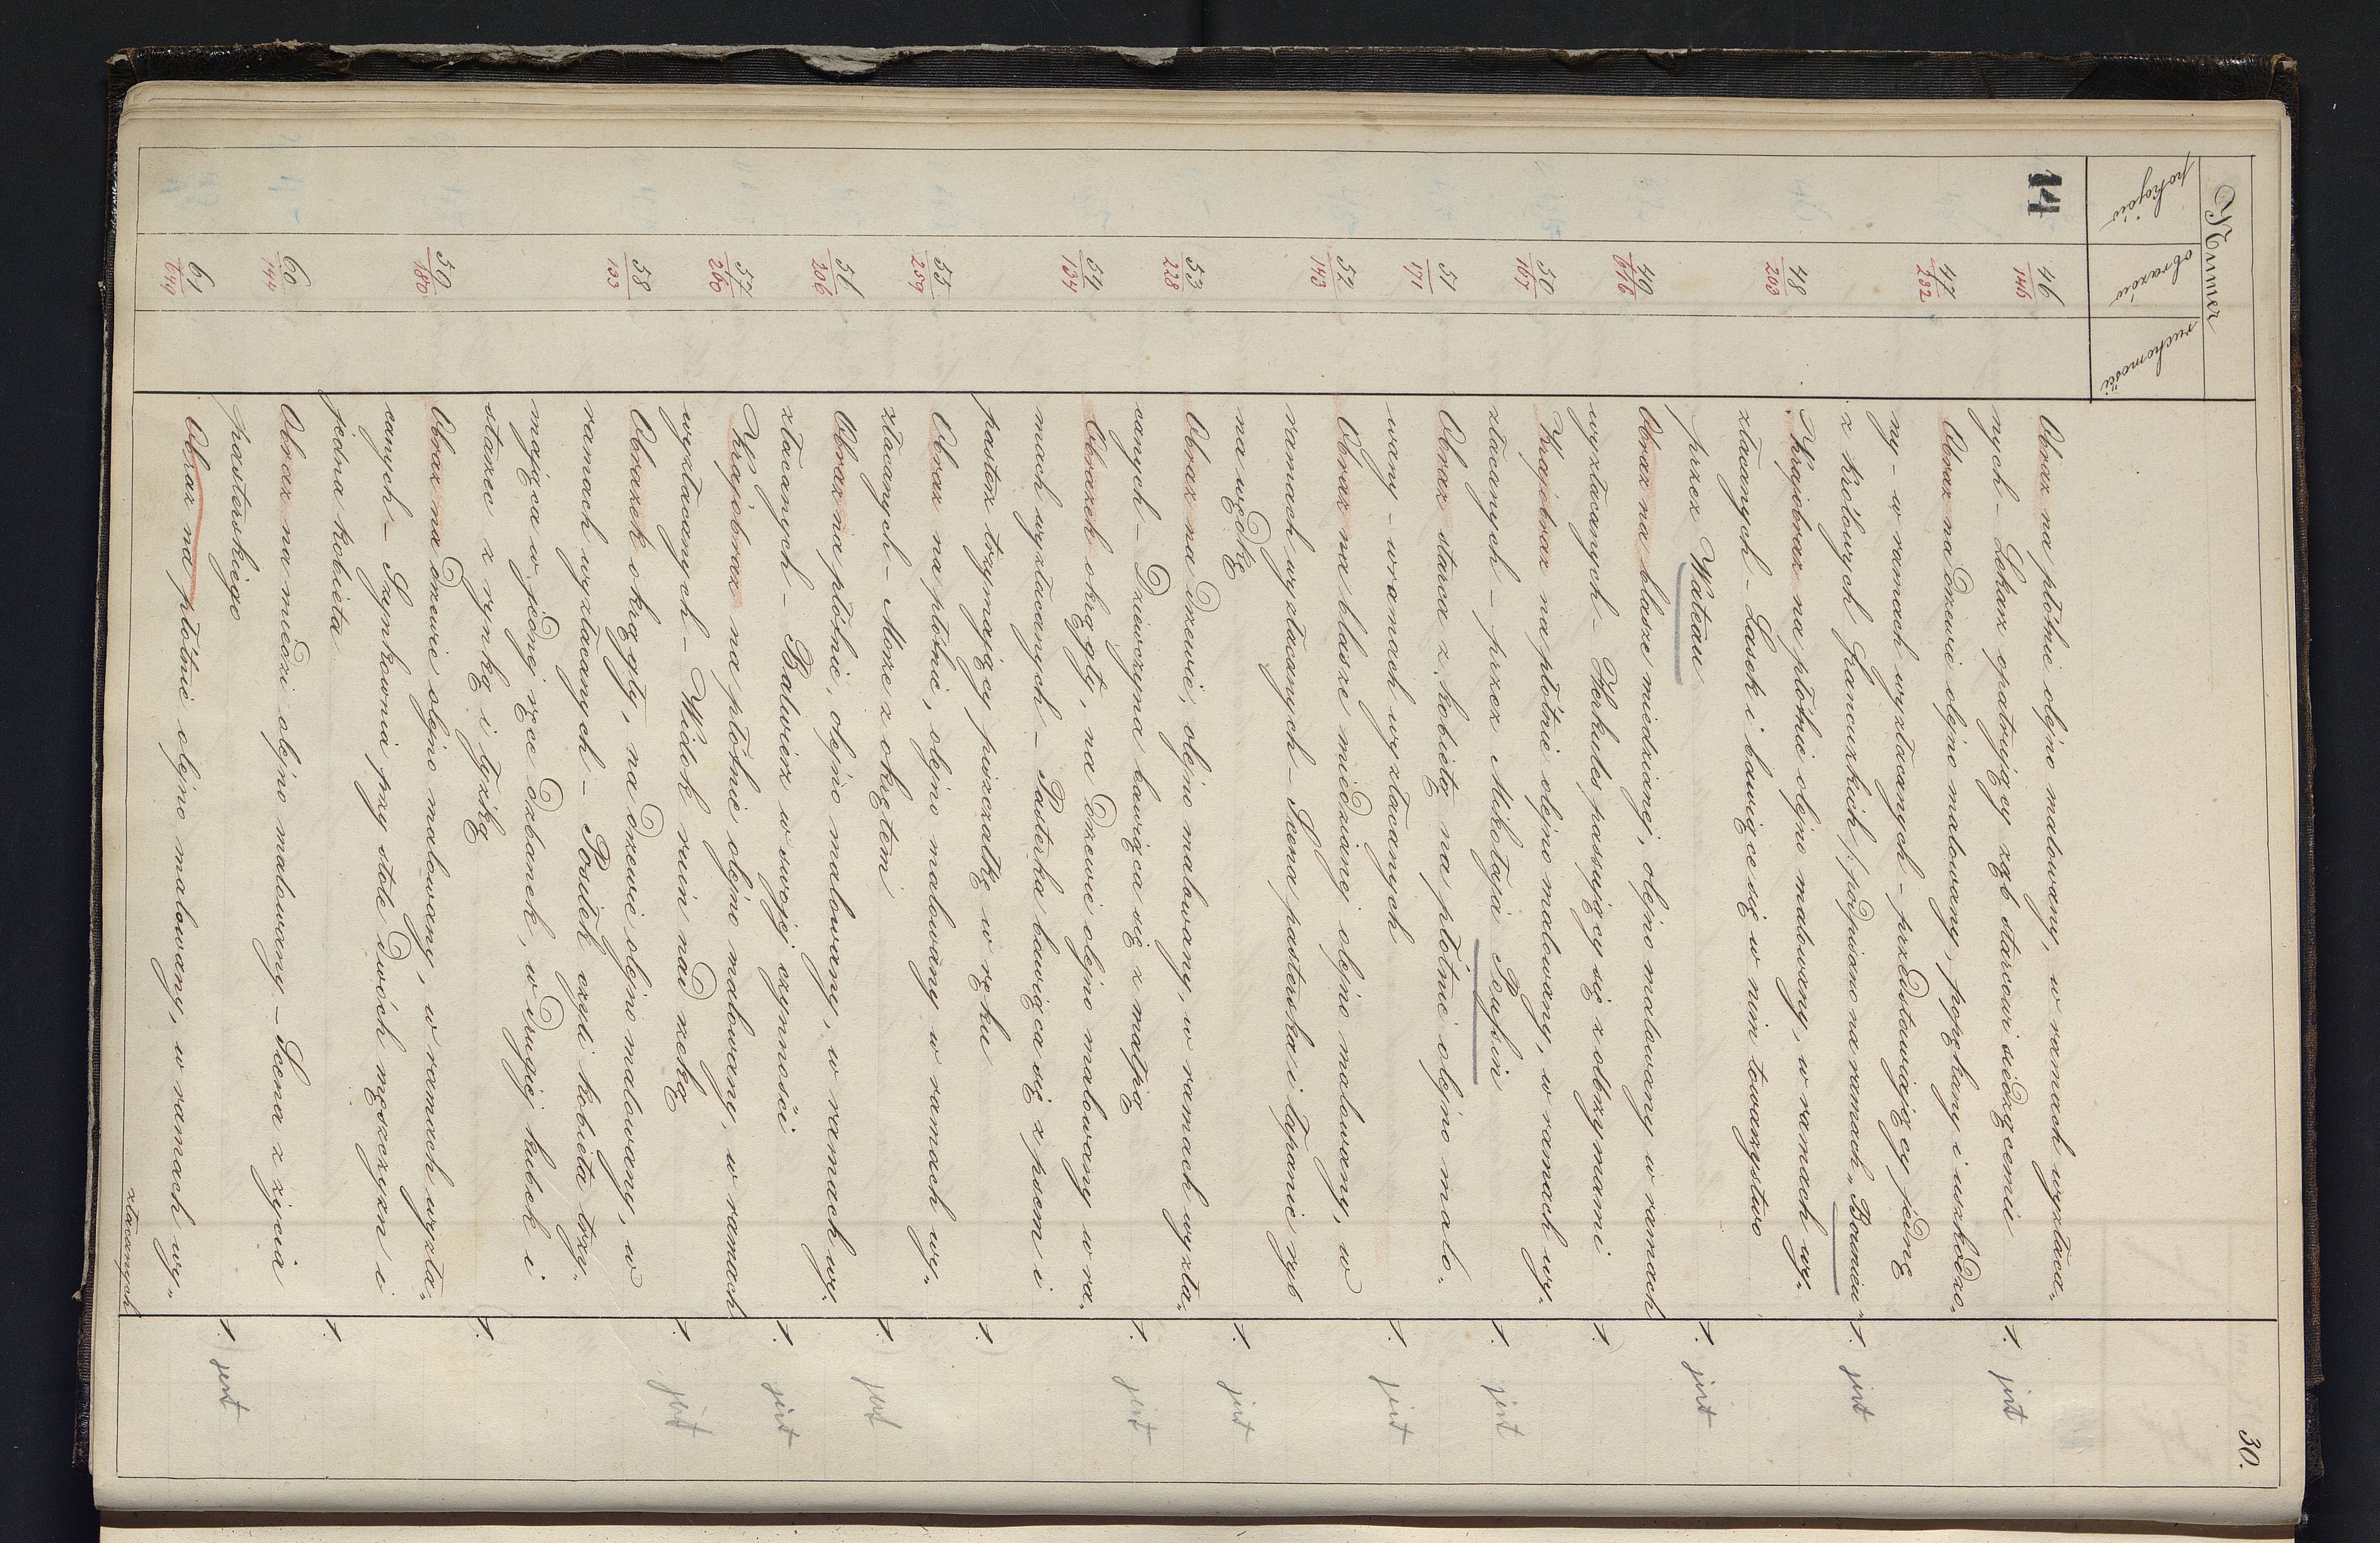 30.
Numer
pokojów obrazów ruchomości
14 46/146 Obraz na płótnie olejno malowany, w ramach wyzłaca-
nych - Lekarz opatrujący ząb starcowi siedzącemu 1. jest
47/232 Obraz na drzewie olejno malowany, popękany i uszkodzo-
ny - w ramach wyzłacanych - przedstawiający jedną
z królowych francuzkich /: podpisano na ramach „Boumieu" 1. jest
48/203 Krajobraz na płótnie olejno malowany, w ramach wy-
złacanych - Lasek i bawiące się w nim towarzystwo
przez Wateau 1. jest
49/616 Obraz na blasze miedzianej, olejno malowany w ramach
wyzłacanych - Herkules passujący się z olbrzymami 1.
50/167 Krajobraz na płótnie olejno malowany, w ramach wy-
złacanych - przez Mikołaja Poussin 1. jest
51/171 Obraz starca z kobietą na płótnie olejno malo-
wany - w ramach wyzłacanych 1. jest
52/143 Obraz na blasze miedzianej olejno malowany, w
ramach wyzłacanych - Scena pasterska i łapanie ryb
na wędkę 1. jest
53/228 Obraz na drzewie, olejno malowany, w ramach wyzła-
canych - Dziewczyna bawiąca się z małpą 1. jest
54/134 Obrazek okrągły, na drzewie olejno malowany w ra-
mach wyzłacanych - Pasterka bawiąca się z psem i
pasterz trzymający piszczałkę w ręku 1.
55/259 Obraz na płótnie, olejno malowany w ramach wy-
złacanych - Morze z okrętem 1. jest
56/206 Obraz na płótnie, olejno malowany, w ramach wy-
złacanych - Balwierz w swojej czynności 1. jest
57/260 Krajobraz na płótnie olejno malowany, w ramach
wyzłacanych - Widok ruin nad rzeką 1. jest
58/133 Obrazek okrągły, na drzewie olejno malowany, w
ramach wyzłacanych - Posiłek czyli kobieta trzy-
mająca w jednej ręce dzbanek, w drugiej kubek i
starzec z rynką i łyżką 1.
59/180 Obraz na drzewie olejno malowany, w ramach wyzła-
canych - Szynkownia przy stole dwóch mężczyzn i
jedna kobieta 1.
60/144 Obraz na miedzi olejno malowany - Scena z życia
pasterskiego 1. jest
61/649 Obraz na płótnie olejno malowany, w ramach wy-
złacanych